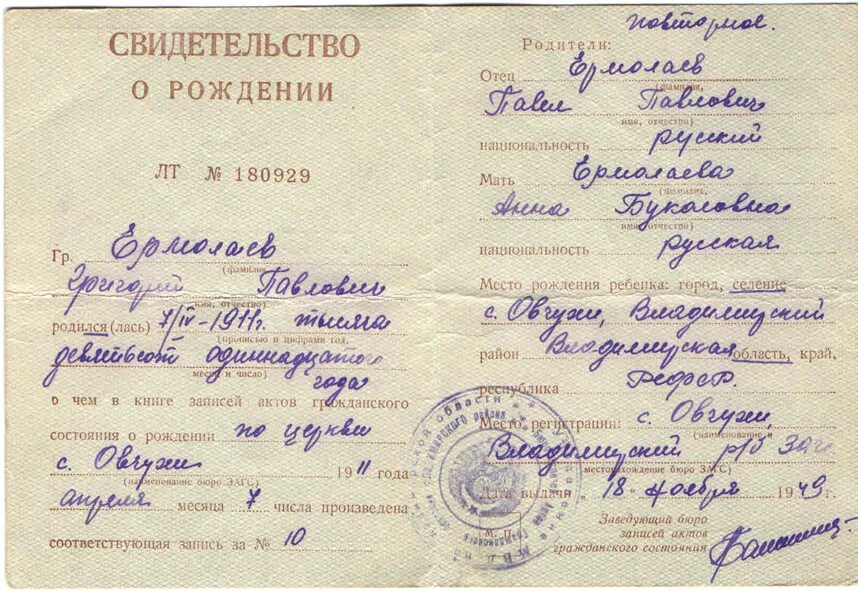 СВИДЕТЕЛЬСТВО
О РОЖДЕНИИ
ЛТ № 180929
Гр. Ермолаев
(фамилия,
Григорий Павлович
имя, отчество)
родился(лась) 7/IV-1911г. тысяча
(прописью и цифрами год,
девятьсот одиннадцатого
месяц и число)
года
о чем в книге записей актов гражданского
состояния о рождении по церкви
с. Овчухи 1911 года
(наименование бюро ЗАГС)
апреля месяца 7 числа произведена
соответствующая запись за № 10
повторное.
Родители:
Отец Ермолаев
(фамилия,
Павел Павлович
имя, отчество)
национальность русский
Мать Ермолаева
(фамилия,
Анна Букаловна
имя, отчество)
национальность русская
Место рождения ребенка: город, селение
с. Овчухи, Владимирский
район Владимирская область, край,
республика РСФСР.
Место регистрации: с. Овчухи,
(наименование и
Владимирский р/б Загс
местонахождение бюро ЗАГС)
Дата выдачи „18" ноября 1949 г.
М. П.
Заведующий бюро
записей актов
гражданского состояния